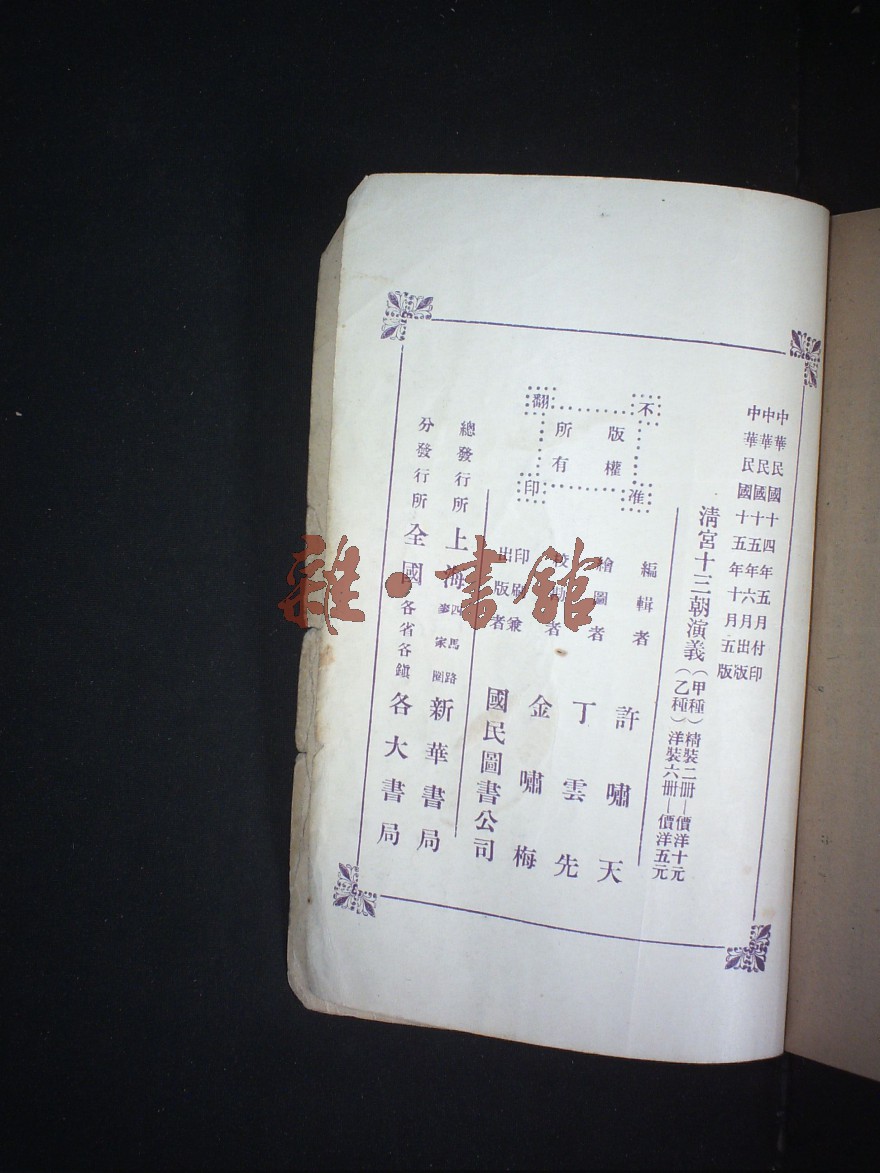 中華民國十四年五月付印
中華民國十五年六月出版
中華民國十五年十月五版
清宮十三朝演義（甲種）精裝二冊—價洋十元
（乙種）洋裝六冊—價洋五元
不准翻印
版權所有
編輯者 許嘯天
繪圖者 丁雲先
校勘者 金嘯梅
印刷兼出版者 國民圖書公司
總發行所 上海四馬路麥家圈 新華書局
分發行所 全國各省各鎮 各大書局
雜·書館